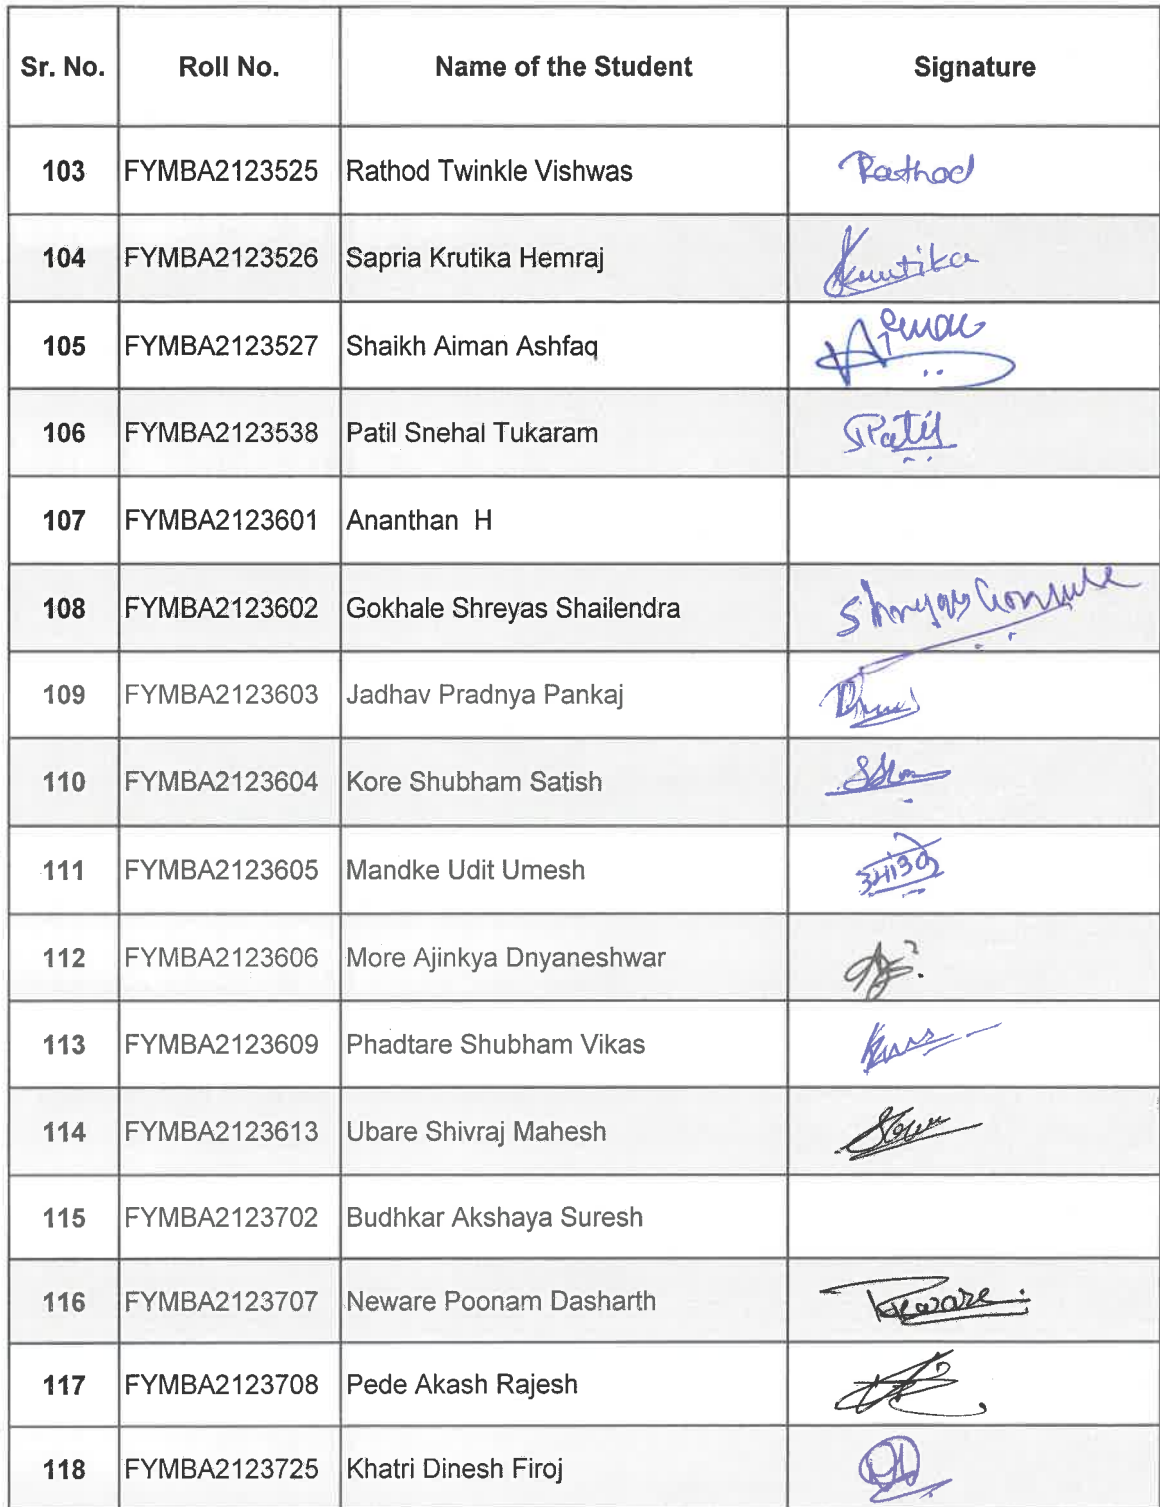 Sr. No. Roll No. Name of the Student Signature
103 FYMBA2123525 Rathod Twinkle Vishwas Rathod
104 FYMBA2123526 Sapria Krutika Hemraj Krutika
105 FYMBA2123527 Shaikh Aiman Ashfaq Aiman
106 FYMBA2123538 Patil Snehal Tukaram SPatil
107 FYMBA2123601 Ananthan H
108 FYMBA2123602 Gokhale Shreyas Shailendra Shreyas
109 FYMBA2123603 Jadhav Pradnya Pankaj
110 FYMBA2123604 Kore Shubham Satish
111 FYMBA2123605 Mandke Udit Umesh
112 FYMBA2123606 More Ajinkya Dnyaneshwar
113 FYMBA2123609 Phadtare Shubham Vikas
114 FYMBA2123613 Ubare Shivraj Mahesh
115 FYMBA2123702 Budhkar Akshaya Suresh
116 FYMBA2123707 Neware Poonam Dasharth
117 FYMBA2123708 Pede Akash Rajesh
118 FYMBA2123725 Khatri Dinesh Firoj